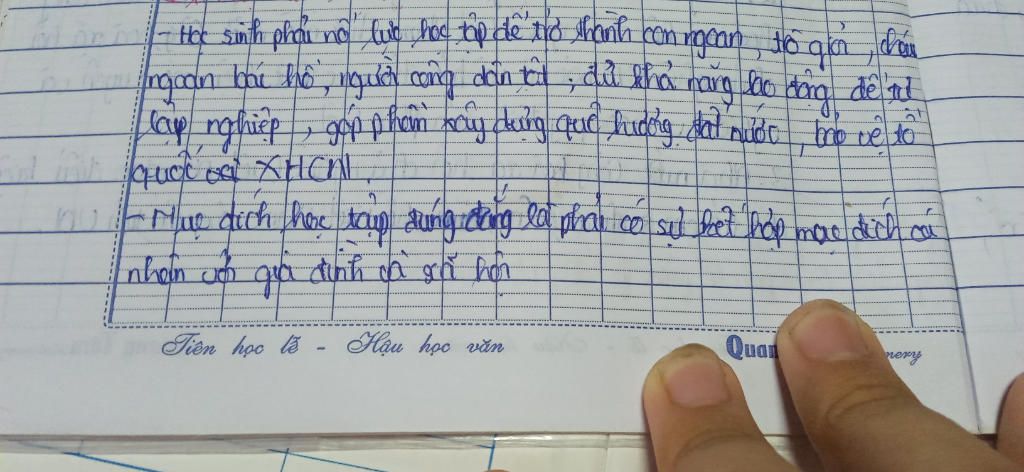 - Học sinh phải nổ lực học tập để trở thành con ngoan, trò giỏi, cháu
ngoan bác hồ, người công dân tốt, đủ khả năng lao động để tự
lập nghiệp, góp phần xây dựng quê hương đất nước, bảo vệ tổ
quốc XHCN
- Mục đích học tập đúng đắng là phải có sự kết hợp mục đích cá
nhân với gia đình và xã hội
Tiên học lễ - Hậu học văn